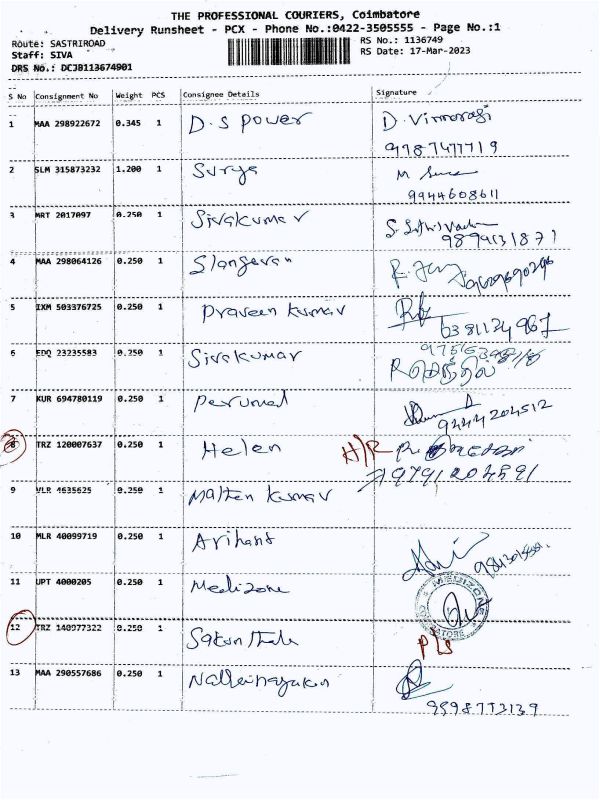 THE PROFESSIONAL COURIERS, Coimbatore
Delivery Runsheet - PCX - Phone No.:0422-3505555 - Page No.:1
Route: SASTRIROAD
RS No.: 1136749
Staff: SIVA
RS Date: 17-Mar-2023
DRS No.: DCJB113674901
S No Consignment No Weight PCS Consignee Details Signature
1 MAA 298922672 0.345 1 D.S Power D.
9787477719
2 SLM 315873232 1.200 1 Surya M
9944608611
3 MRT 2017097 0.250 1 Sivakumar S.
9894131871
4 MAA 298064126 0.250 1 Slangovan R.
5 IXM 503376725 0.250 1 Praveen kumar
6381124967
6 EDQ 23235583 0.250 1 Sivakumar
R செந்தில்
7 KUR 694780119 0.250 1 Perumal
9444204512
8 TRZ 120007637 0.250 1 Helen H/R
9791204591
9 VLR 4635625 0.250 1 Malten kumar
10 MLR 40099719 0.250 1 Arihant
11 UPT 4000205 0.250 1 Medizone
MEDIZONE
12 TRZ 140977322 0.250 1 Sakunthala P/S
13 MAA 290557686 0.250 1 Nallainayakan
9598773139